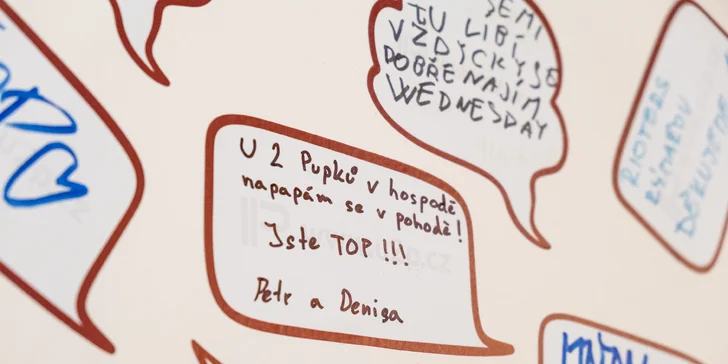 SEMI
TU LIBÍ
VŽDYCKY SE
DOBŘE NAJÍM
WEDNESDAY
U 2 Pupků v hospodě
napapám se v pohodě!
Jste TOP !!!
Petr a Denisa
RIOTERS